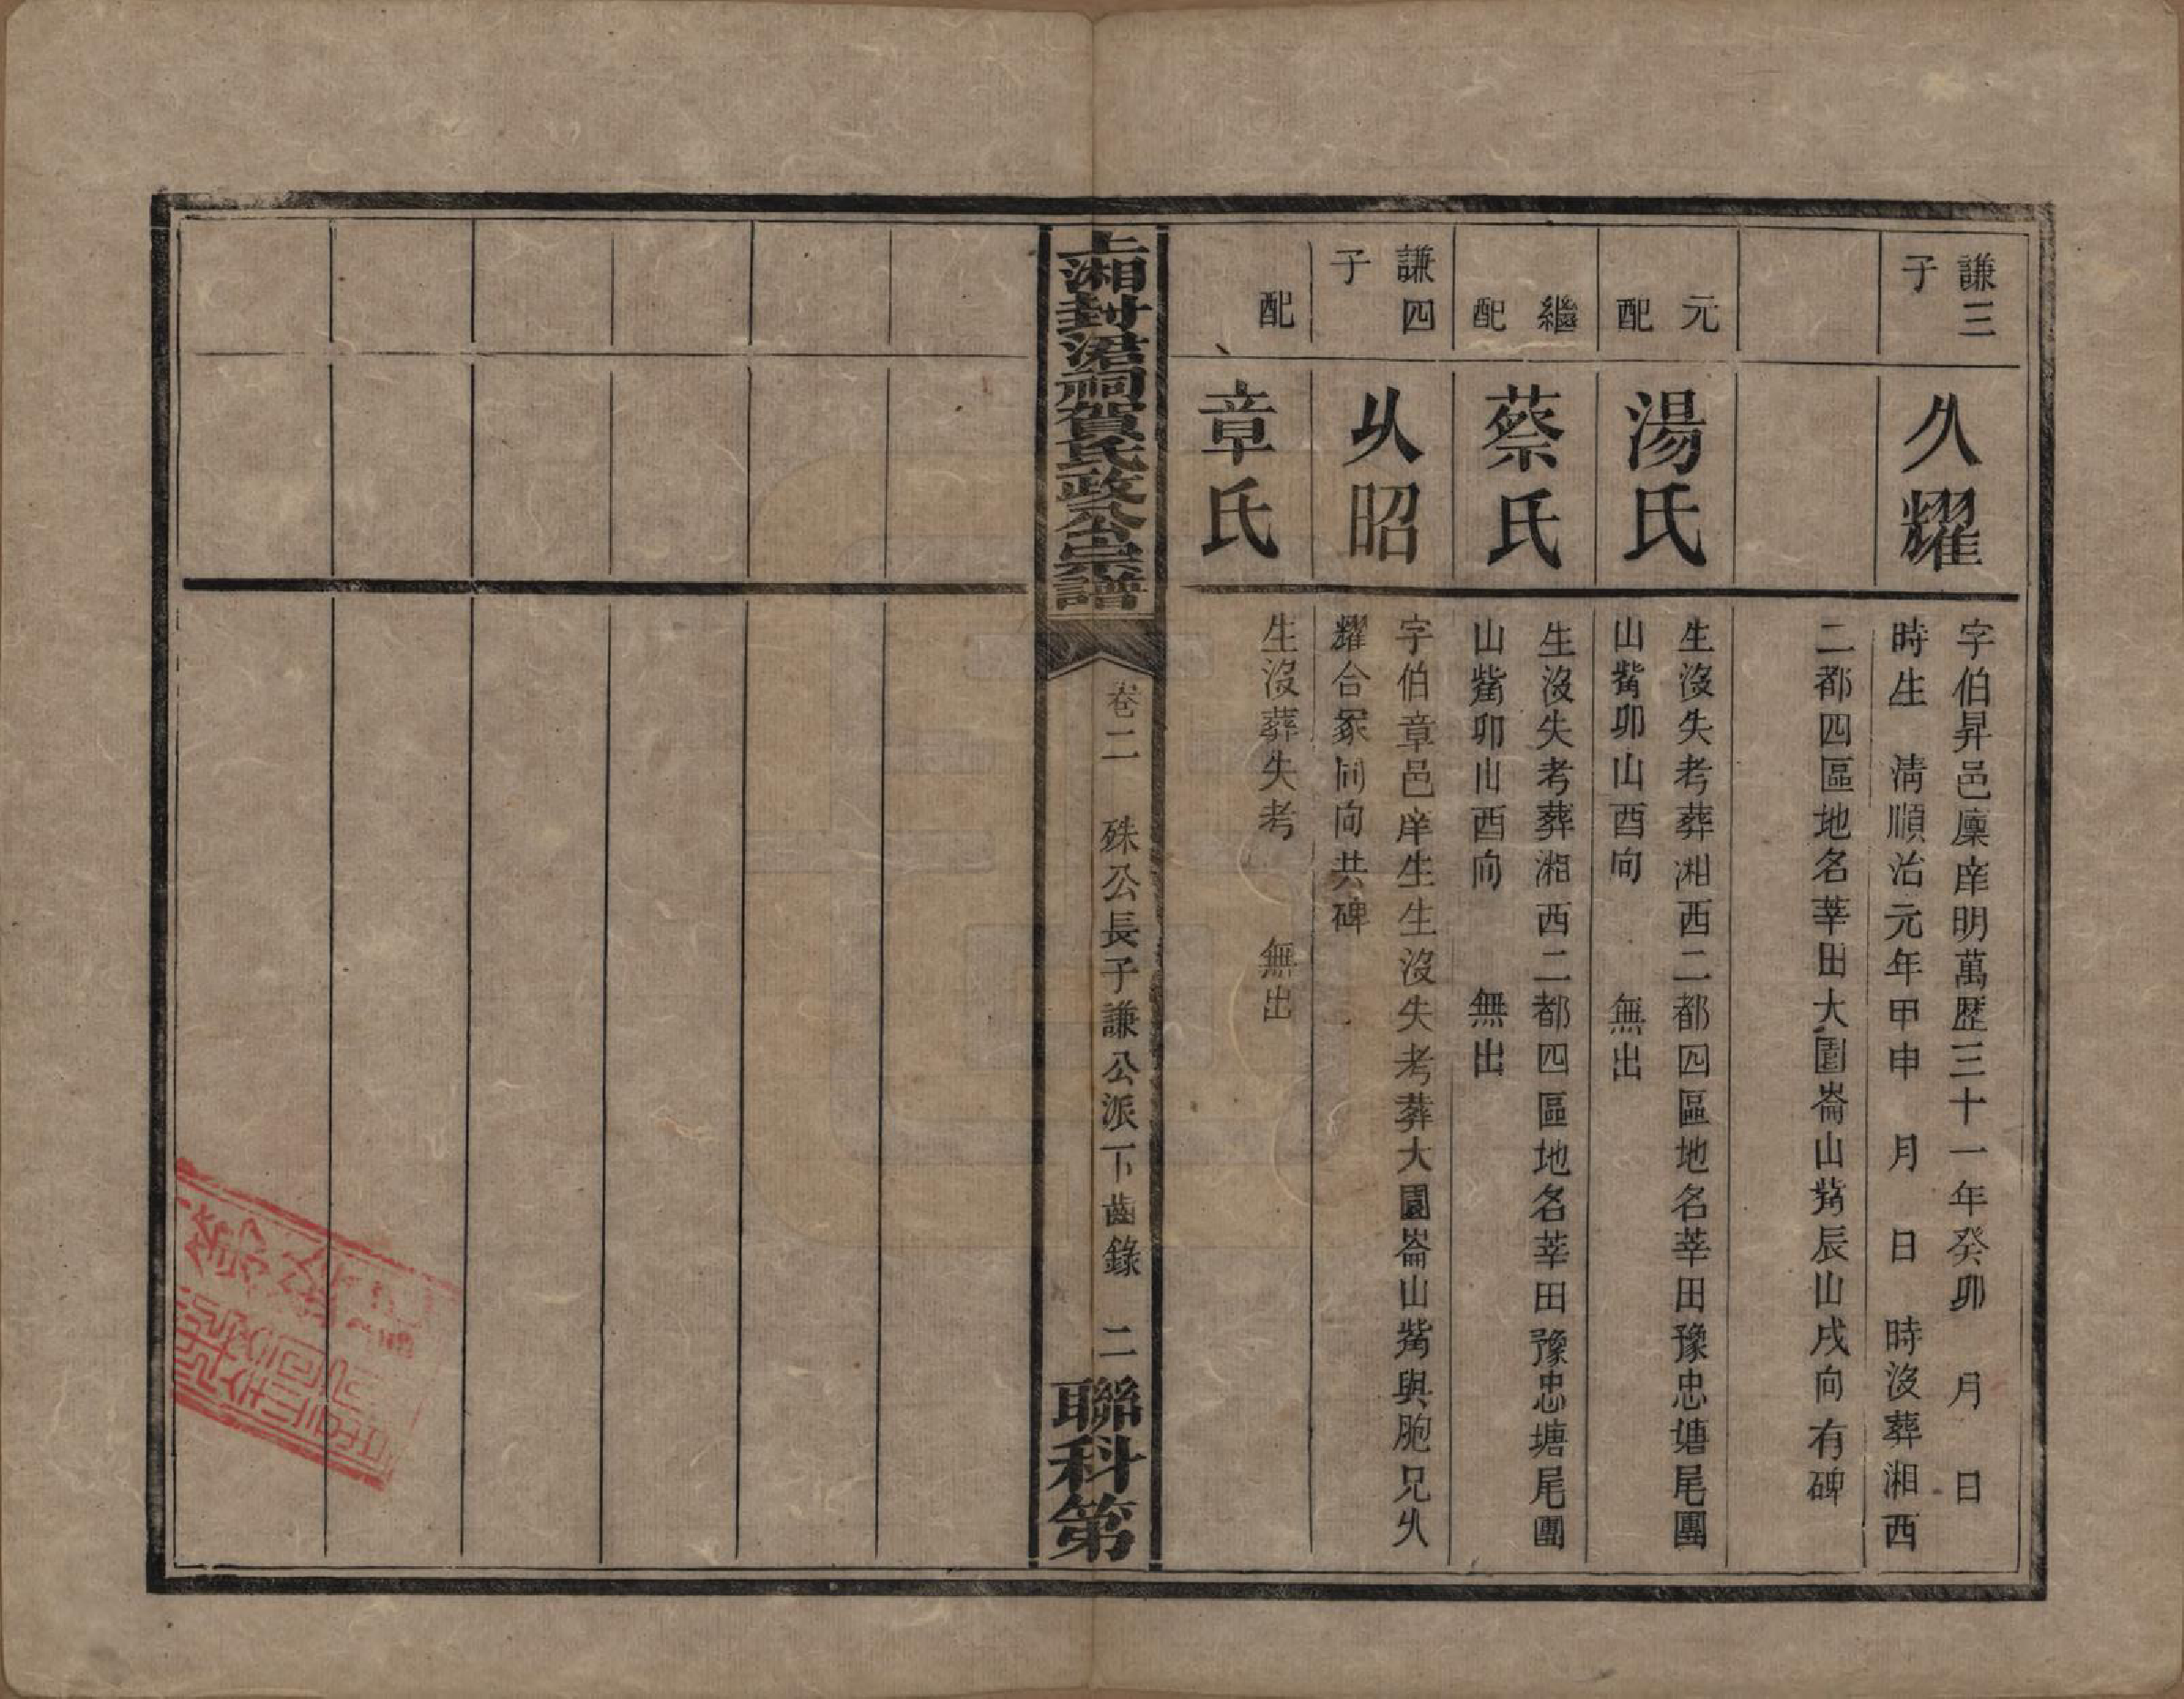 謙三
子
久耀
字伯昇邑廩庠明萬歷三十一年癸卯　月　日
時生　清順治元年甲申　月　日　時沒葬湘西
二都四區地名莘田大園崙山觜辰山戌向有碑
元
配
湯氏
生沒失考葬湘西二都四區地名莘田豫忠塘尾團
山觜卯山酉向　無出
繼
配
蔡氏
生沒失考葬湘西二都四區地名莘田豫忠塘尾團
山觜卯山酉向　無出
謙四
子
久昭
字伯章邑庠生生沒失考葬大園崙山觜與胞兄久
耀合冢同向共碑
配
章氏
生沒葬失考　無出
上湘封涒祠賀氏政公宗譜
卷二　殊公長子謙公派下齒錄　二
聯科第